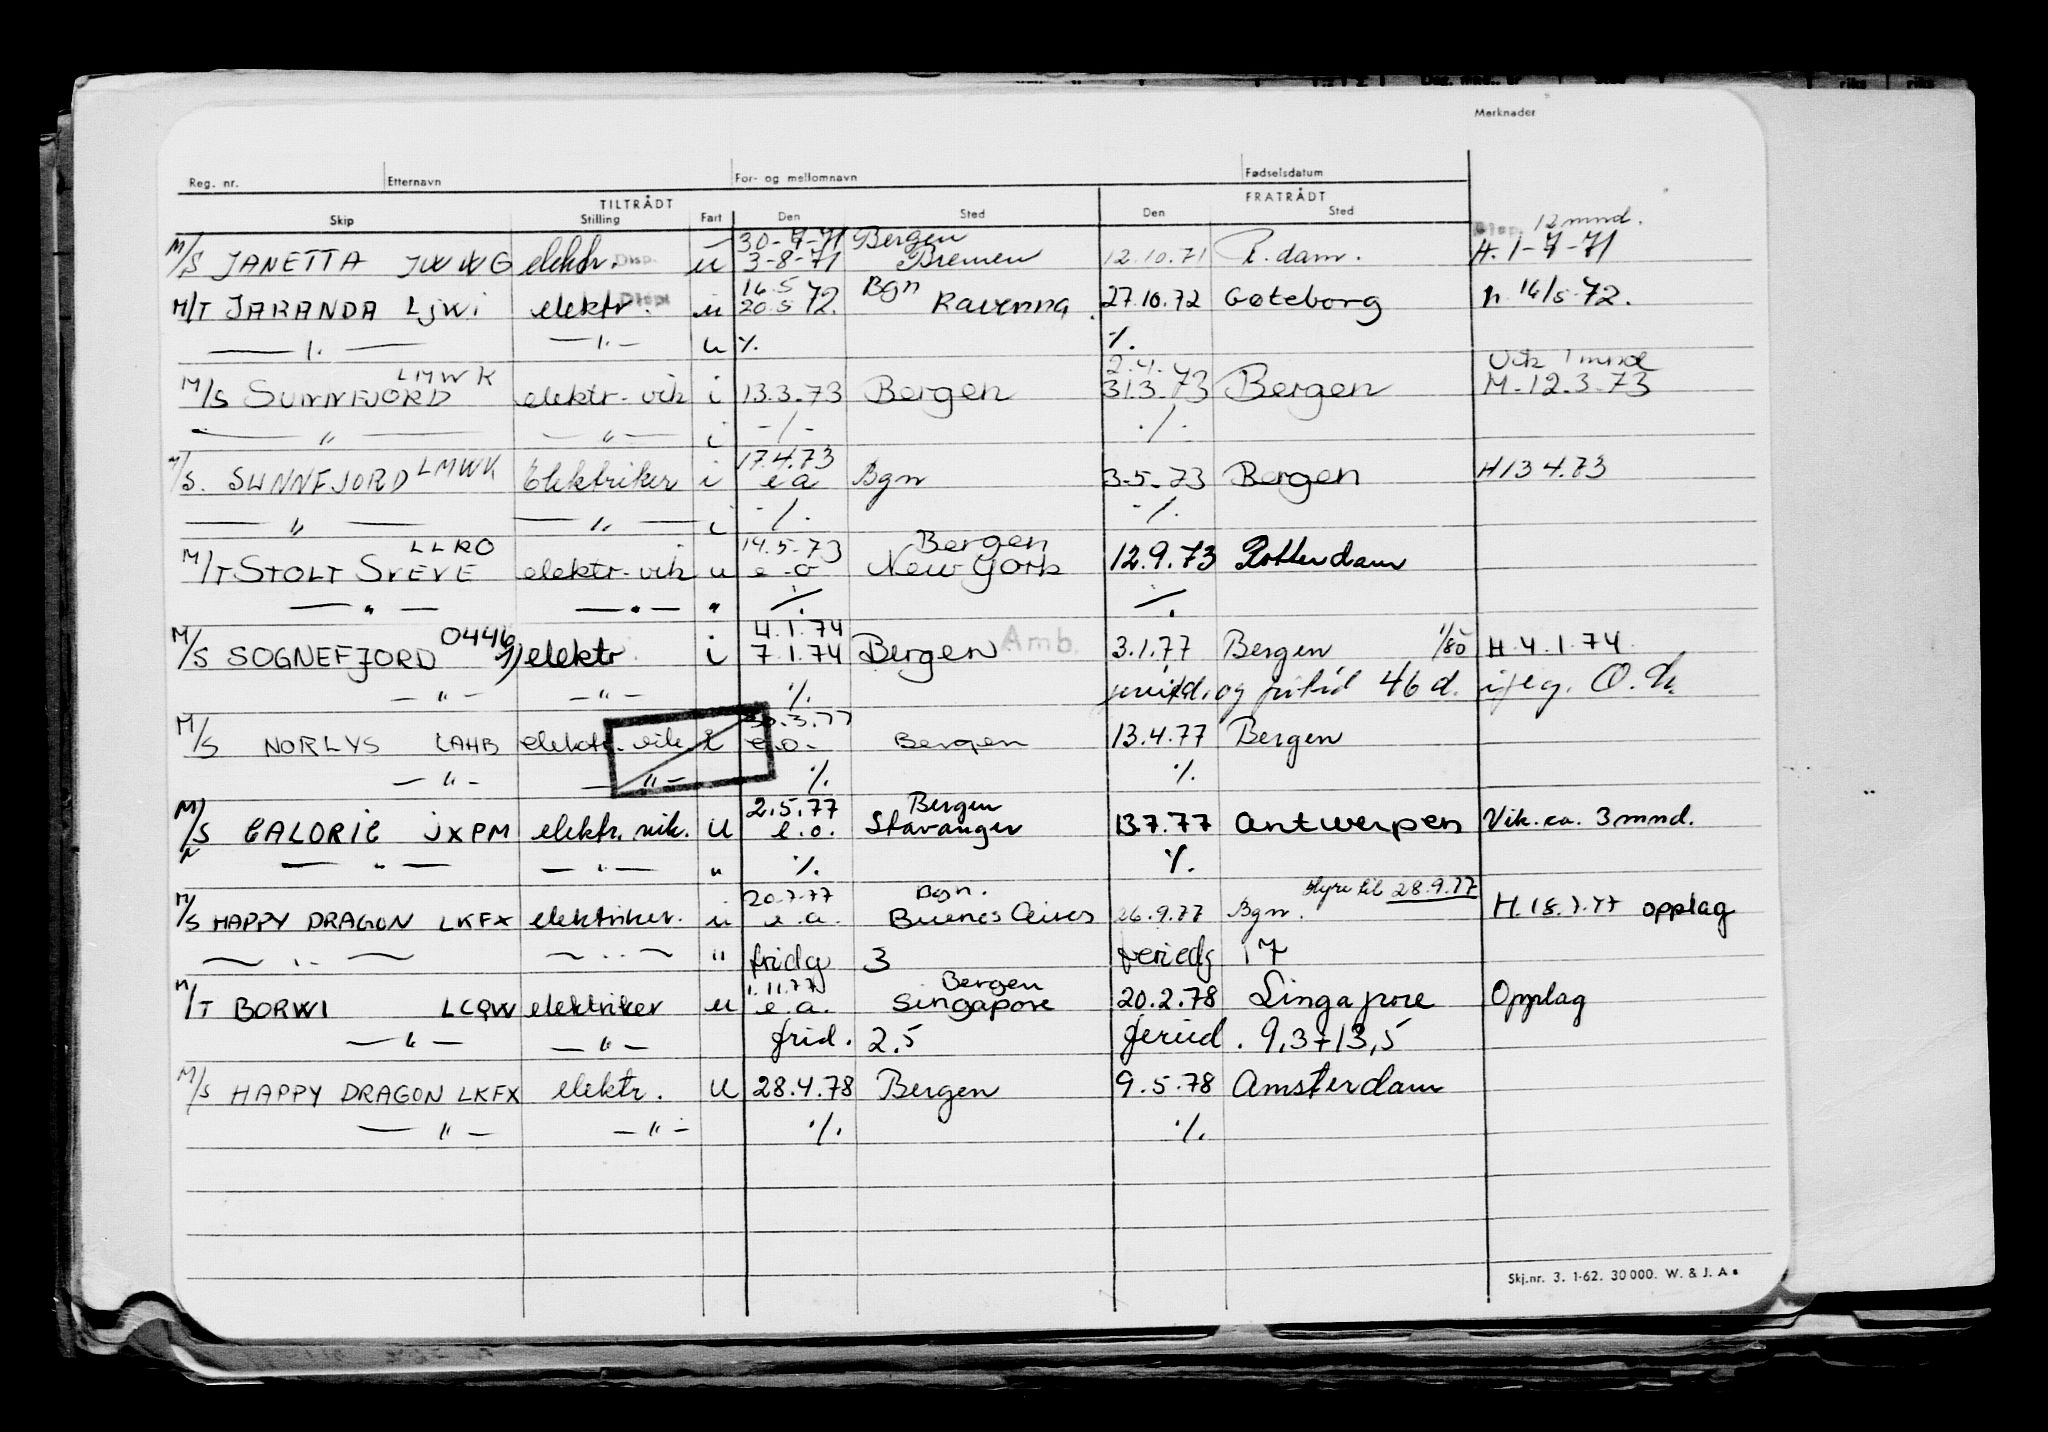 Merknader
Reg. nr. Etternavn For- og mellomnavn Fødselsdatum
TILTRÅDT FRATRÅDT
Skip Stilling Fart Den Sted Den Sted
30-7-71 Bergen Disp. 12 mnd.
M/S JANETTA JWWG elektr. Disp. u 3-8-71 Bremen 12.10.71 R.dam. H. 1-7-71
16.5 Bgn
M/T JARANDA LJWI elektr. Disp. u 20.5 72. Ravenna. 27.10.72 Gøteborg h. 16/5-72.
— 1. — — 1. — u ⁒ ⁒
LMWK 2.4.73 Vik 1 mnd
M/S SUNNFJORD elektr. vik i 13.3.73 Bergen 31.3.73 Bergen M.12.3.73
— " — — " — i -/- ./.
17.4.73
M/S. SUNNFJORD LMWK Elektriker i e a Bgn 3.5.73 Bergen H 13 4.73
— " — — " — i -/. -/.
LLRO 14.5.73 Bergen
M/T STOLT SVEVE elektr. vik u e o New York 12.9.73 Rotterdam
— " — — " — " ⁒ ⁒
0446 4.1.74
M/S SOGNEFJORD elektr. i 7.1.74 Bergen Amb. 3.1.77 Bergen 1/80 H.4.1.74
— " — — " — ⁒ og fritid 46 d.
30.3.77
M/S NORLYS LAHB elektr. vik i e.o. Bergen 13.4.77 Bergen
— " — — " — ⁒ ⁒
2.5.77 Bergen
M/S CALORIC JXPM elektr. vik. u e.o. Stavanger 13.7.77 Antwerpen Vik. ca. 3 mnd.
— " — — " — " ⁒ ⁒
20.7.77 Bgn. Hyre til 28.9.77
M/S HAPPY DRAGON LKFX elektriker. u e.a. Buenos Aires 26.9.77 Bgn. H.18.7.77 opplag
— " — — " — " fridg 3 feriedg 17
1.11.77 Bergen
M/T BORWI LCQW elektriker u e.a. Singapore 20.2.78 Singapore Opplag
— " — — " — frid. 2.5 feried. 9,3+13,5
M/S HAPPY DRAGON LKFX elektr. u 28.4.78 Bergen 9.5.78 Amsterdam
— " — — " — ⁒ ⁒
Skj.nr. 3. 1-62. 30 000. W. & J. A